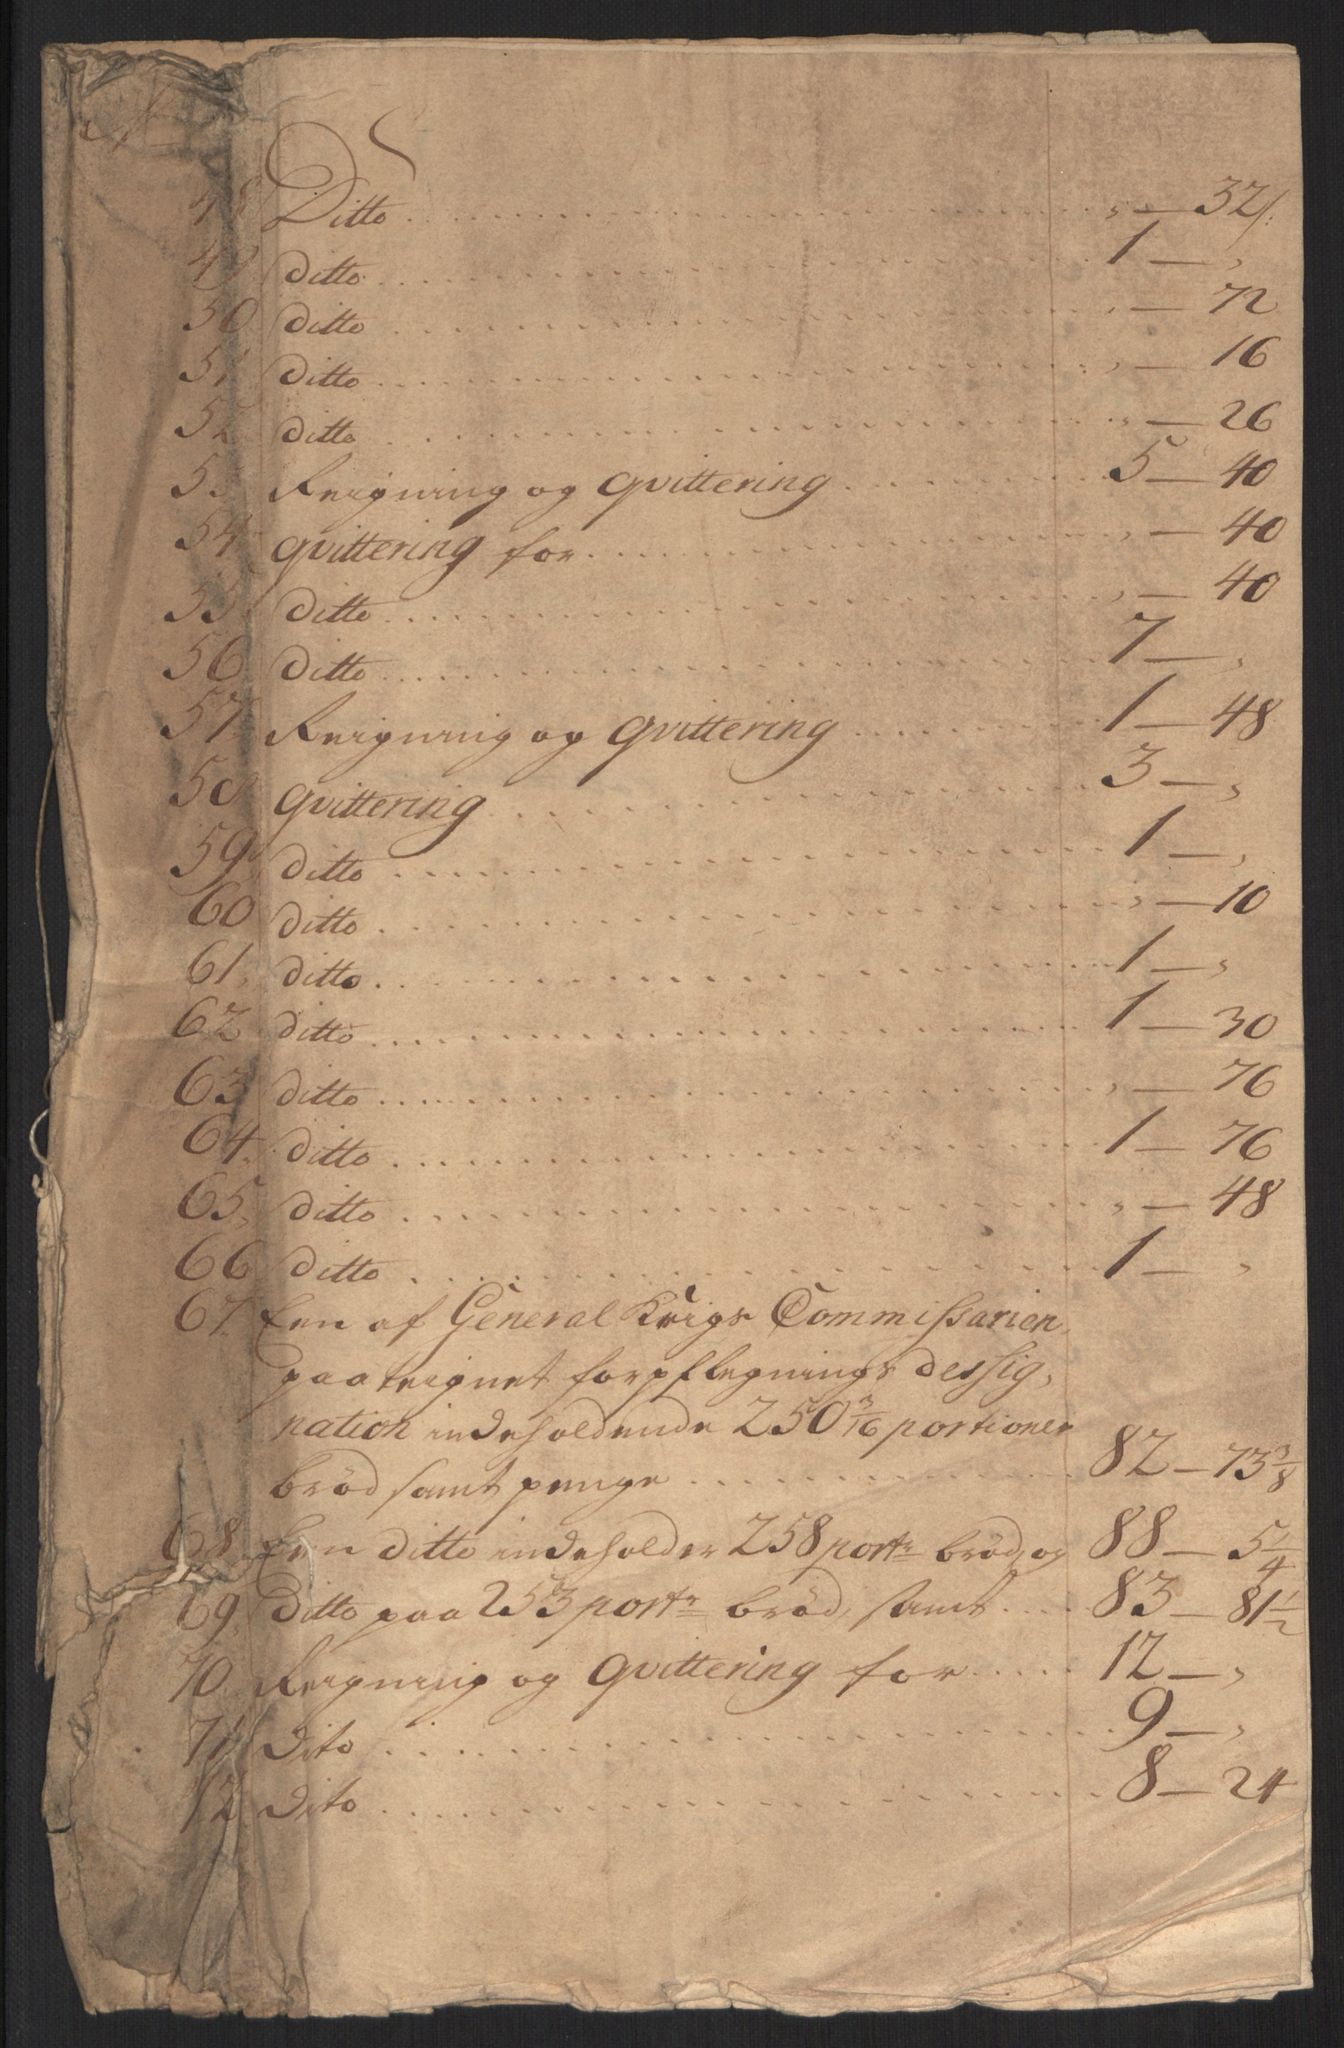 48 Ditto . . . „ — 32 ß:
49 ditto . . . 1 — „
50 ditto . . . „ — 72
51 ditto . . . „ — 16
52 ditto . . . „ — 26
53 Reigning og qvittering . . . 5 — 40
54 qvittering for . . . „ — 40
55 ditto . . . „ — 40
56 ditto . . . 7 — „
57 Reigning og qvittering . . . 1 — 48
58 qvittering . . . 3 — „
59 ditto . . . 1 — „
60 ditto . . . „ — 10
61 ditto . . . 1 — „
62 ditto . . . 1 — 30
63 ditto . . . „ — 76
64 ditto . . . 1 — 76
65 ditto . . . „ — 48
66 ditto . . . 1 — „
67 Een af General Krigs Commissarien
paateignet forpflegnings dessig,
nation indeholdende 250 3/16 portioner
brød samt penge . . . 82 — 73 3/8
68 Een ditto indeholder 258 portr brød, og 88 — 5 1/4
69 ditto paa 253 portr brød, samt . . . 83 — 81 1/2
70 Reigning og qvittering for . . . 12 — „
71 dito . . . 9 — „
72 dito . . . 8 — 24